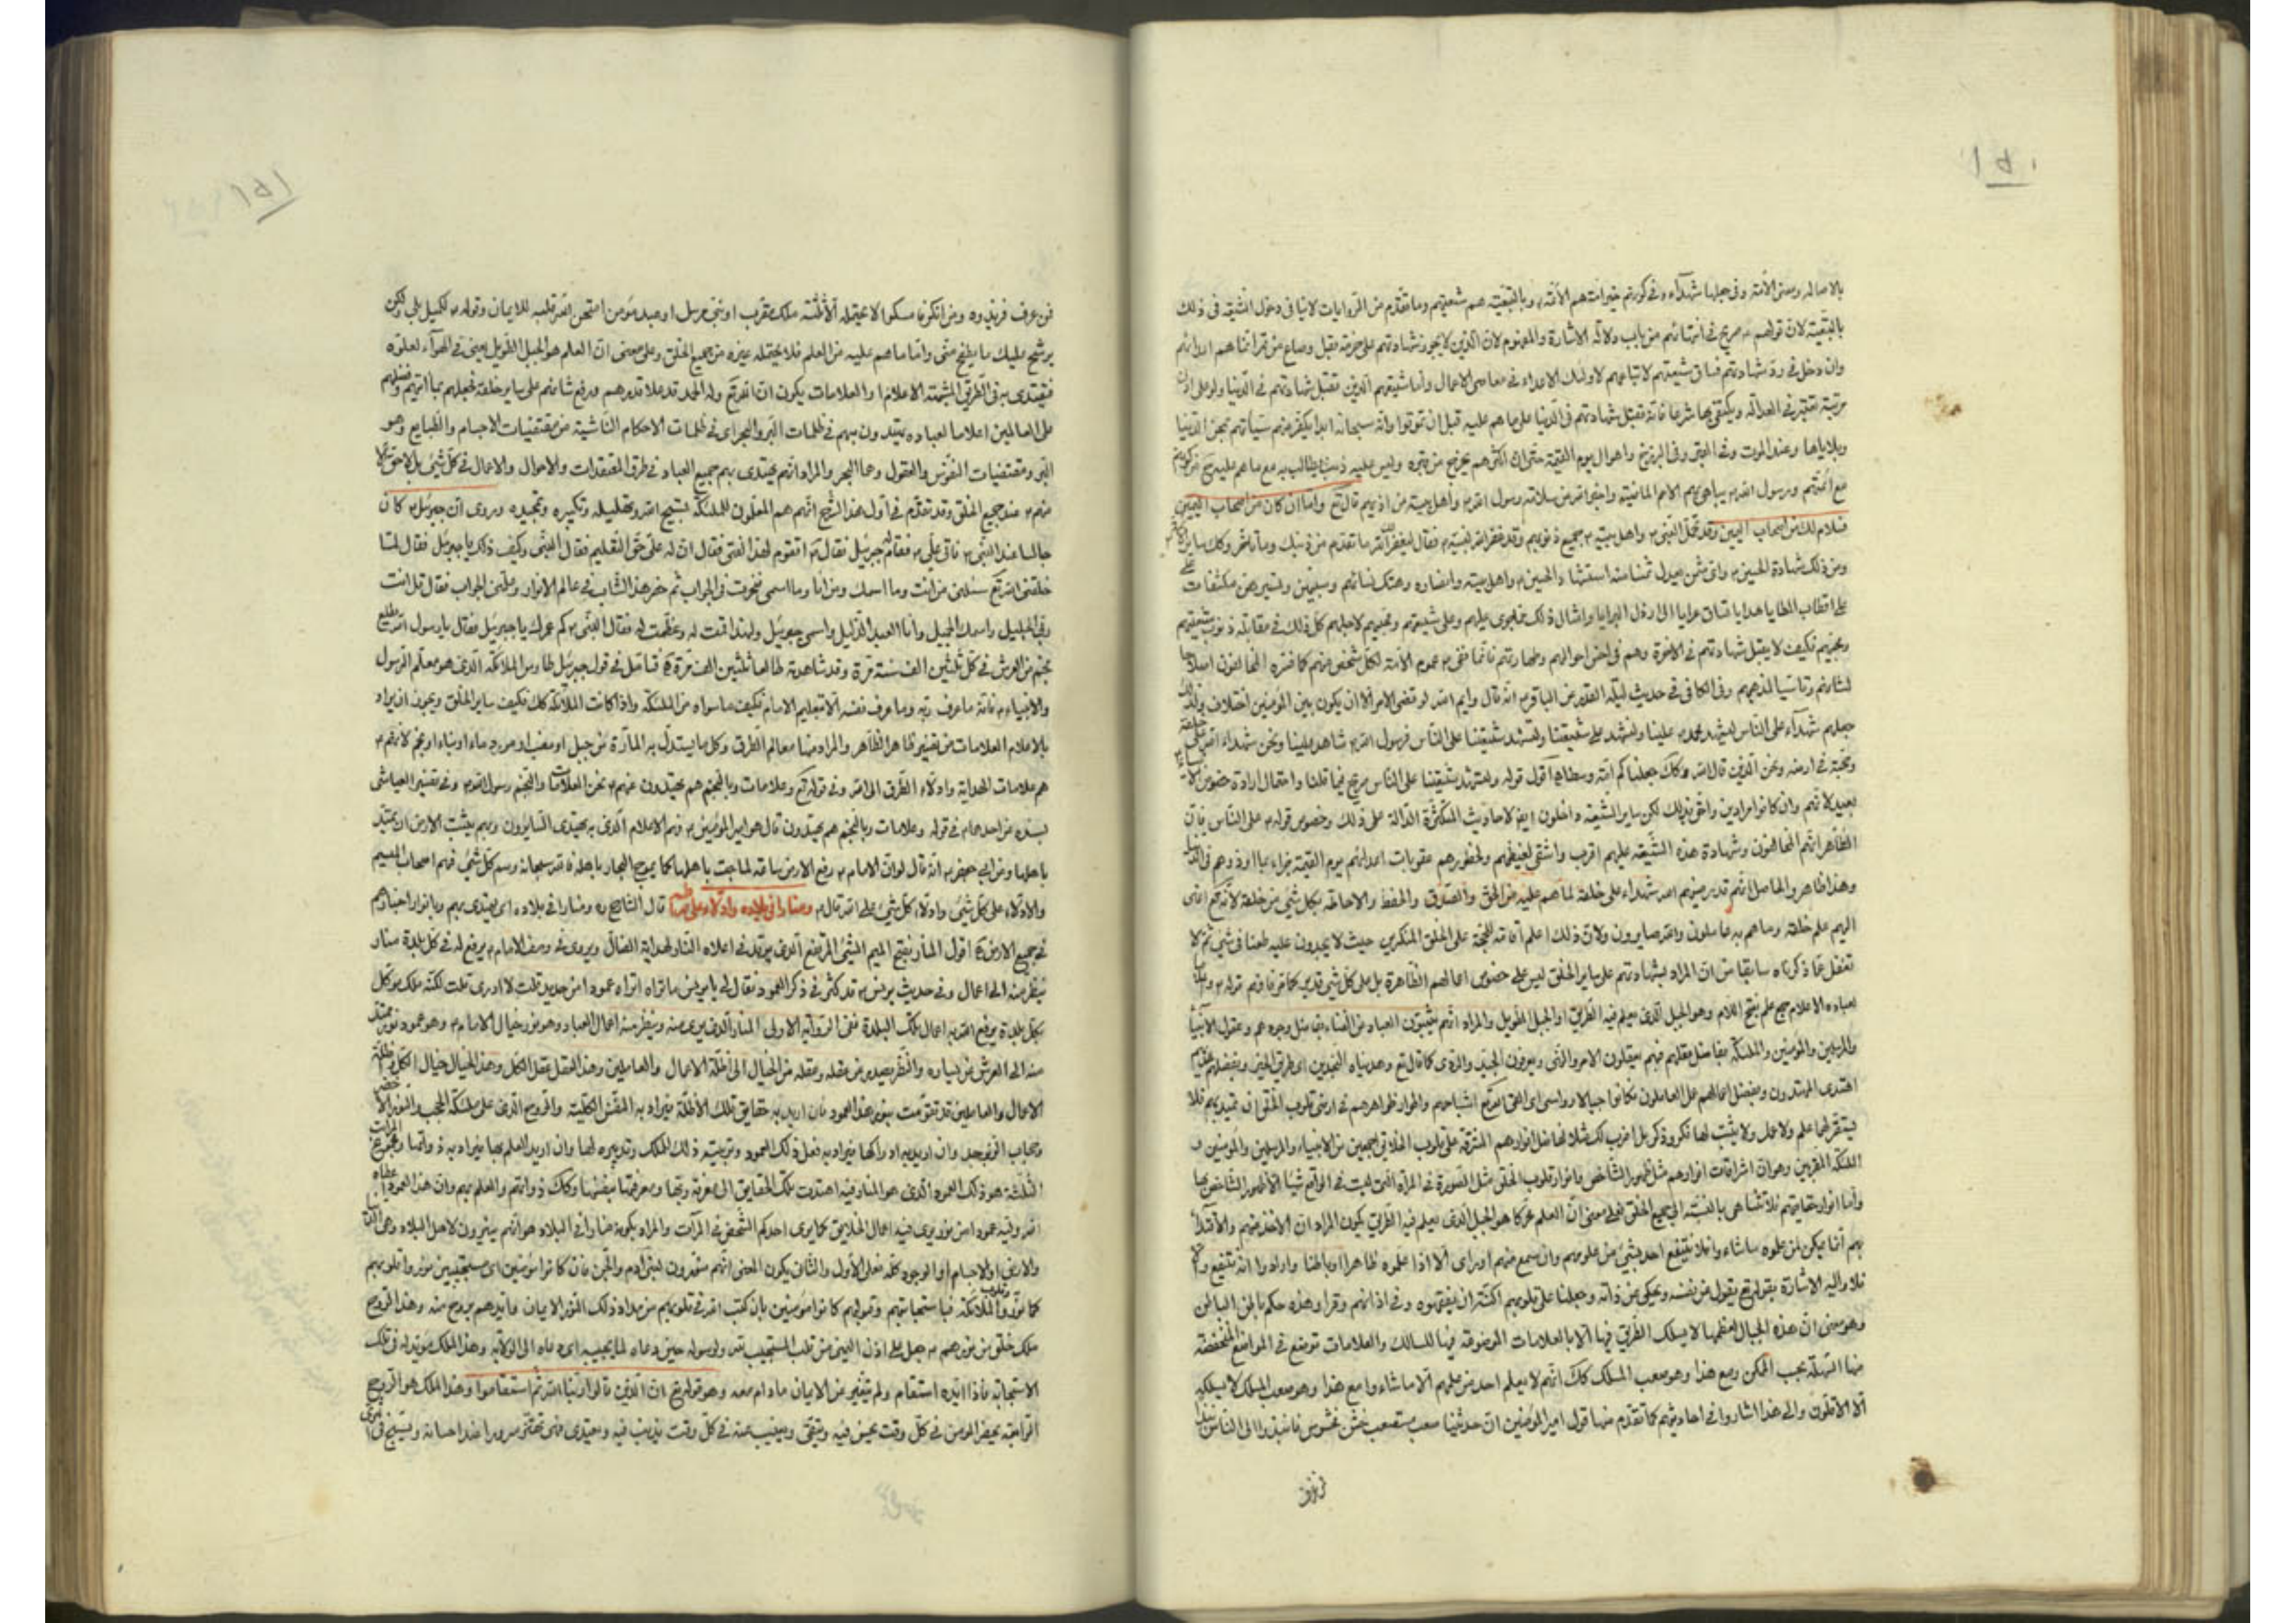 ١٥٠
بالاصالة ومعنى الامة وفي جعلها شهدآء وفي كونهم خير امة هم الائمة م وبالتبعية هم شيعتهم وما تقدم من الروايات لا ينافي دخول الشيعة في ذلك
بالتبعية لان قولهم م صريح في اثباتهم من باب دلالة الاشارة والمفهوم لان الذين لا يجوز شهادتهم على حزمة بقل وصاع من تمر انما هم اعدائهم
وان دخل في رد شهادتهم فساق شيعتهم لاتباعهم لاولئك الاعداء في معاصي الاعمال واما شيعتهم الذين تقبل شهادتهم في الدنيا ولو على ادنى
مرتبة تعتبر في العدالة ويكتفي بها شرعا فانه تقبل شهادتهم في الدنيا على ما هم عليه قبل ان تموتوا وانه سبحانه ابدا يكفر عنهم سيئاتهم بمحن الدنيا
وبلاياها وعند الموت وفي القبر وفي البرزخ واهوال يوم القيمة حتى ان اكثرهم يخرج من قبره وليس عليه ذنب يطالب به مع ما هم عليه
مع ائمتهم ورسول الله م يباهي بهم الامم الماضية واخبر الله من سلامة رسول الله م واهل بيته من اذيهم قال تع واما ان كان من اصحاب اليمين
فسلام لك من اصحاب اليمين وقد تحمل النبي م واهل بيته م جميع ذنوبهم وقد غفر الله لنبيه م فقال ليغفر لك الله ما تقدم من ذنبك وما تأخر وكك ساير
ومن ذلك شهادة الحسين م واي ثمن يعدل ثمنا منه استشهاد الحسين م واهل بيته وانصاره وهتك نسائهم وسبيهن وتسييرهن مكشفات
على اقطاب المطايا هدايا تساق عرايا الى ارذل البرايا وامثال ذلك مما جرى عليهم وعلى شيعتهم ومحبيهم لاجلهم كل ذلك في مقابلة ذنوب شيعتهم
ومحبيهم فكيف لا يقبل شهادتهم في الاخرة وهم في احسن احوالهم وطهارتهم فانما نفى م عموم الامة لكل شخص منهم كما فسره المخالفون اصلاحا
لشانهم وتاسيا لمذهبهم وفي الكافي في حديث ليلة القدر عن الباقر م انه قال وايم الله لو قضى الامر الا ان يكون بين المؤمنين اختلاف ولذلك
جعلهم شهدآء على الناس ليشهد محمد م علينا ولنشهد على شيعتنا ولتشهد شيعتنا على الناس فرسول الله م شاهد علينا ونحن شهداء الله على خلقه
وحجته في ارضه ونحن الذين قال الله وكك جعلناكم امة وسطا ه اقول قوله ولتشهد شيعتنا على الناس صريح فيما قلنا واحتمال ارادة خصوص الانبياء
بعيد لانهم وان كانوا مرادين واحق بذلك لكن ساير الشيعة داخلون ايضا لاحاديث المتكثرة الدالة على ذلك وخصوص قوله م على الناس فان
الظاهر انهم المخالفون وشهادة هذه الشيعة عليهم اقرب واشفى لغيظهم ولحضورهم عقوبات اعدائهم يوم القيمة جزاء بما اوذوهم في الدنيا
وهذا ظاهر والحاصل انهم قد رضيهم الله شهداء على خلقه لما هم عليه من الحق والصدق والحفظ والاحاطة بكل شئ من خلقه لانه تع انهى
اليهم علم خلقه وما هم به عاملون واليه صايرون ولان ذلك اعلم آفاته للحجة على الخلق المنكرين حيث لا يجدون عليه طعنا في شئ ثم لا
تغفل عما ذكرناه سابقا من ان المراد بشهادتهم على ساير الخلق ليس على خصوص اعمالهم الظاهرة بل على كل شئ قدير كما عرفناهم قوله م واعلاما
لعباده الاعلام جمع علم بفتح اللام وهو الجبل الذي يعلم فيه الطريق او الجبل الطويل والمراد انهم يثبتون العباد من الفناء بفاضل وجودهم وعقول الانبياء
والمرسلين والمؤمنين والملئكة بفاضل عقلهم فبهم يعقلون الامر والنهي ويعرفون الجيد والردى كما قال تع وهديناه النجدين اي طريق الخير وبفضل هدايتهم
اهتدى المهتدون وبفضل اعمالهم عمل العاملون فكانوا جبالا رواسي
يستقر لها علم ولا عمل ولا يثبت لها فكر وذكر بل اضرب لك مثلا لفاضل انوارهم المشرقة على قلوب الخلايق اجمعين من الانبياء والمرسلين والمؤمنين و
الملئكة المقربين وهو ان اشراقات انوارهم مثل ظهور الشاخص وانوار قلوب الخلق مثل الصورة في المرآة التي ليست في الواقع شيئا الا ظهور الشاخص بها
واما انوار حقايقهم فلا تتناهى بالنسبة الى جميع الخلق فعلى معنى ان العلم محركا هو الجبل الذي يعلم فيه الطريق يكون المراد ان الاخذ منهم والاقتداء
بهم انما يمكن لمن علموه ما شاءوا فلا ينتفع احد بشئ من علومهم وان سمع منهم او رأى الا اذا علموه ظاهرا او باطنا وارادوا انه ينتفع والا
فلا واليه الاشارة بقوله تع يقول عن نفسه ويحكي عن ذاته وجعلنا على قلوبهم اكنة ان يفقهوه وفي اذانهم وقرا وهذه حكم باطن الباطن
وهو معنى ان هذه الجبال لعظمها لا يسلك الطريق فيها الا بالعلامات الموضوعة فيها للسالك والعلامات توضع في المواضع المنخفضة
منها السهلة بحسب الممكن ومع هذا وهو صعب المسلك كك انهم لا يعلم احد من علمهم الا ما شاءوا مع هذا وهو صعب المسلك لا يسلكه
الا الاقلون والى هذا اشاروا في احاديثهم كما تقدم منها قول امير المؤمنين ان حديثنا صعب مستصعب خشن مخشوش فانبذوا الى الناس نبذا
فمن عرف
١٥١
فمن عرف فزيدوه ومن انكر فامسكوا لا يحتمله الا ثلثة ملك مقرب او نبي مرسل او عبد مؤمن امتحن الله قلبه للايمان وقوله م لكميل بلى ولكن
يرشح عليك ما يطفح مني واما ما هم عليه من العلم فلا يحتمله غيره من جميع الخلق وعلى معنى ان العلم هو الجبل الطويل يعني في الهوآء لعلوه
فيقتدى به في الطريق المشبهة الاعلام او العلامات يكون ان الله تع وله الحمد قد علا قدرهم ورفع شانهم على ساير خلقه فجعلهم بما آتيهم وفضلهم
على العالمين اعلاما لعباده يهتدون بهم في ظلمات البر والبحر اي في ظلمات الاحكام الناشية من مقتضيات الاجسام والطبايع وهو
البر ومقتضيات النفوس والعقول وهما البحر والمراد انهم يهتدى بهم جميع العباد في طرق المعتقدات والاحوال والاعمال في كل شئ بل لا حق الا
منهم م عند جميع الخلق وقد تقدم في اول هذا الشرح انهم هم المعلمون للملئكة تسبيح الله وتهليله وتكبيره وتمجيده وروى ان جبرئيل م كان
جالسا عند النبي م فاتى علي م فقام له جبرئيل فقال م اتقوم لهذا الفتى فقال ان له علي حق التعليم فقال النبي وكيف ذلك يا جبرئيل فقال لما
خلقني الله تع سئلني من انت وما اسمك ومن انا وما اسمي فتحيرت في الجواب ثم حضر هذا الشاب في عالم الانوار وعلمني الجواب فقال قل انت
ربي الجليل واسمك الجميل وانا العبد الذليل واسمي جبرئيل ولهذا قمت له وعظمت له فقال النبي م كم عمرك يا جبرئيل فقال يا رسول الله يطلع
نجم من العرش في كل ثلثين الف سنة مرة وقد شاهدته طالعا ثلثين الف مرة ه فتامل في قول جبرئيل طاوس الملائكة الذي هو معلم الرسول
والانبياء م فانه ما عرف ربه وما عرف نفسه الا بتعليم الامام فكيف ما سواه من الملئكة واذا كانت الملائكة كك فكيف ساير الخلق ويجوز ان يراد
بالاعلام العلامات من تفسير ظاهر الظاهر والمراد منها معالم الطرق وكل ما يستدل به المارة من جبل او مغب او مرج ماء او بناء او نجم لانهم م
هم علامات الهداية وادلاء الطرق الى الله وفي قوله تع وعلامات وبالنجم هم يهتدون عنهم م نحن العلامات والنجم رسول الله م وفي تفسير العياشي
بسنده عن احدهما م في قوله وعلامات وبالنجم هم يهتدون قال هو امير المؤمنين م وهم الاعلام الذي به يهتدى السايرون وبهم يثبت الارض ان يميد
باهلها وعن ابي جعفر م انه قال لو ان الامام م رفع الارض ساعة لماجت باهلها كما يموج البحار باهله
والادلاء على كل شئ وادلاء كل شئ على الله قال م ومنارا في بلاده وادلاء على صراطه قال الشارح ره ومنارا في بلاده اي يهتدى بهم وبانوار اخبارهم
في جميع الارض ه اقول المنار بفتح الميم الشئ المرتفع الذي يوقد في اعلاه النار لهداية الضال وروى في وصف الامام م يرفع له في كل بلدة منار
ينظر منه الى اعمال وفي حديث يونس م قد كثر في ذكر العمود فقال لي يا يونس ما تراه اتراه عمودا من حديد قلت لا ادرى قلت لكنه ملك موكل
بكل بلدة يرفع الله به اعمال تلك البلدة ففي الرواية الاولى المنار الذي يرى منه وينظر منه اعمال العباد وهو نور خيال الامام م وهو عمود نور ممتد
منه الى العرش عن يساره والنظر بعينه من عقله وعقله من الخيال الى اظلة الاعمال والعاملين وهذا العقل عقل الكل وهذا الخيال خيال الكل واظلة
الاعمال والعاملين قد تقومت بنور هذا العمود فان اريد به حقايق تلك الاظلة فيراد به النفس الكلية والروح الذي على ملئكة الحجب والنور الاخضر
وحجاب الزبرجد وان اريد به ادراكها فيراد به فعل ذلك العمود وتربيته ذلك الملك وتدبيره لها وان اريد العلم بها فيراد به ذواتها ومجموع المراتب
الثلثة هو ذلك العمود الذي هو المنار فبه اهتدت تلك الحقايق الى معرفة ربها ومعرفتها بنفسها وكك ذواتهم والعلم بهم وان هذا العمود اعطاه
الله وليه عمودا من نور يرى فيه اعمال الخلايق كما يرى احدكم الشخص في المرآت والمراد بكونه منارا في البلاد هو انهم ينيرون لاهل البلاد وهي
والارض او الاجسام او الوجود كله فعلى الاول والثاني يكون المعنى انهم منورون لبني آدم والجن فان كانوا مؤمنين اي مستجيبين نوروا قلوبهم
كما نوروا قلوب الملائكة فباستجابتهم وقبولهم كانوا مؤمنين بان كتب الله في قلوبهم من مداد ذلك النور الايمان وايدهم بروح منه وهذا الروح
ملك خلق من نورهم م جعل على اذن اليمنى من قلب المستجيب لله ولرسوله حين دعاه لما يحييه اي دعاه الى الولاية وهذا الملك مؤيد له في تلك
الاستجابة فاذا ايده استقام ولم يتغير من الايمان ما دام معه وهو قوله تع ان الذين قالوا ربنا الله ثم استقاموا وهذا الملك هو الروح
الرابعة يحضر المؤمن في كل وقت يحسن فيه ويتقى ويغيب عنه في كل وقت يذنب فيه ويعتدى فهي تهتز سرورا عند احسانه وتسيخ في الثرى